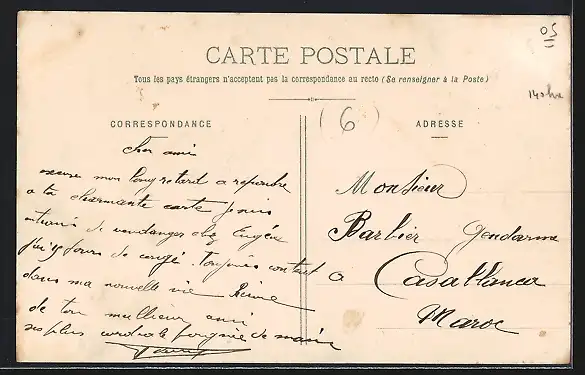 CARTE POSTALE
Tous les pays étrangers n'acceptent pas la correspondance au recto (Se renseigner à la Poste)
05
(6
CORRESPONDANCE
ADRESSE
Cher ami
excuse mon long retard a repondre
a ta charmante carte je suis
de vendanges chez Eugène
j'ai 15 jours de congé. Toujours content
dans ma nouvelle vie
de ton meilleur ami
ses plus cordiale poignée de main
Monsieur
Barbier Gendarme
a Casablanca
Maroc